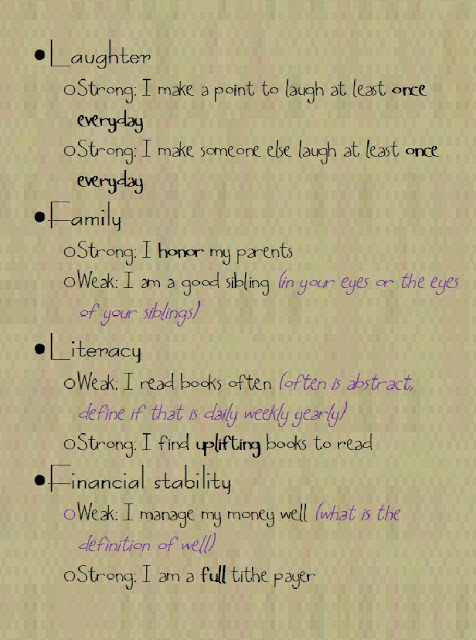 • Laughter
○ Strong: I make a point to laugh at least once
everyday
○ Strong: I make someone else laugh at least once
everyday
• Family
○ Strong: I honor my parents
○ Weak: I am a good sibling (in your eyes or the eyes
of your siblings)
• Literacy
○ Weak: I read books often (often is abstract,
define if that is daily weekly yearly)
○ Strong: I find uplifting books to read
• Financial stability
○ Weak: I manage my money well (what is the
definition of well)
○ Strong: I am a full tithe payer